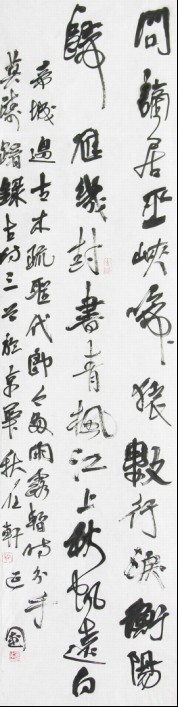 問謫居巫峽啼猿數行淚衡陽
歸雁幾封書青楓江上秋帆遠白
帝城邊古木疏聖代即今多雨露暫時分手
莫躊躇錄古詩三首於京華秋軒